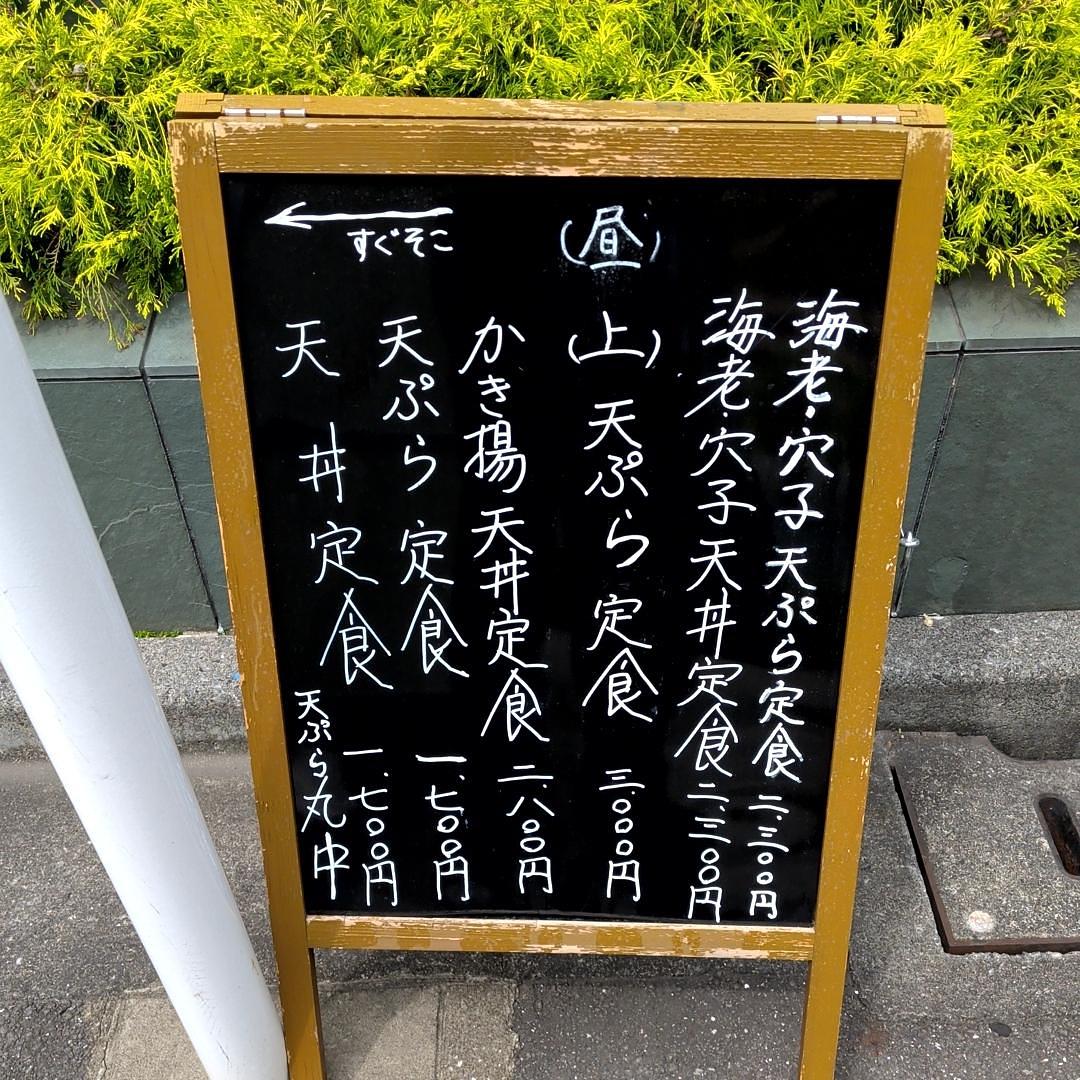 (昼)
海老・穴子天ぷら定食 二、三〇〇円
海老・穴子天丼定食 二、三〇〇円
(上)天ぷら定食 三〇〇〇円
かき揚天丼定食 二、八〇〇円
天ぷら定食 一、七〇〇円
天丼定食 一、七〇〇円
天ぷら丸中
すぐそこ